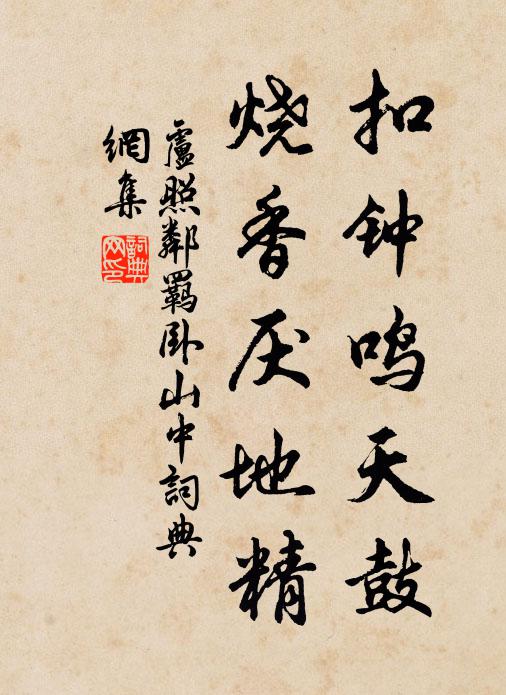 扣钟鸣天鼓
烧香厌地精
盧照鄰羈卧山中詞典
網集
詞典
网印